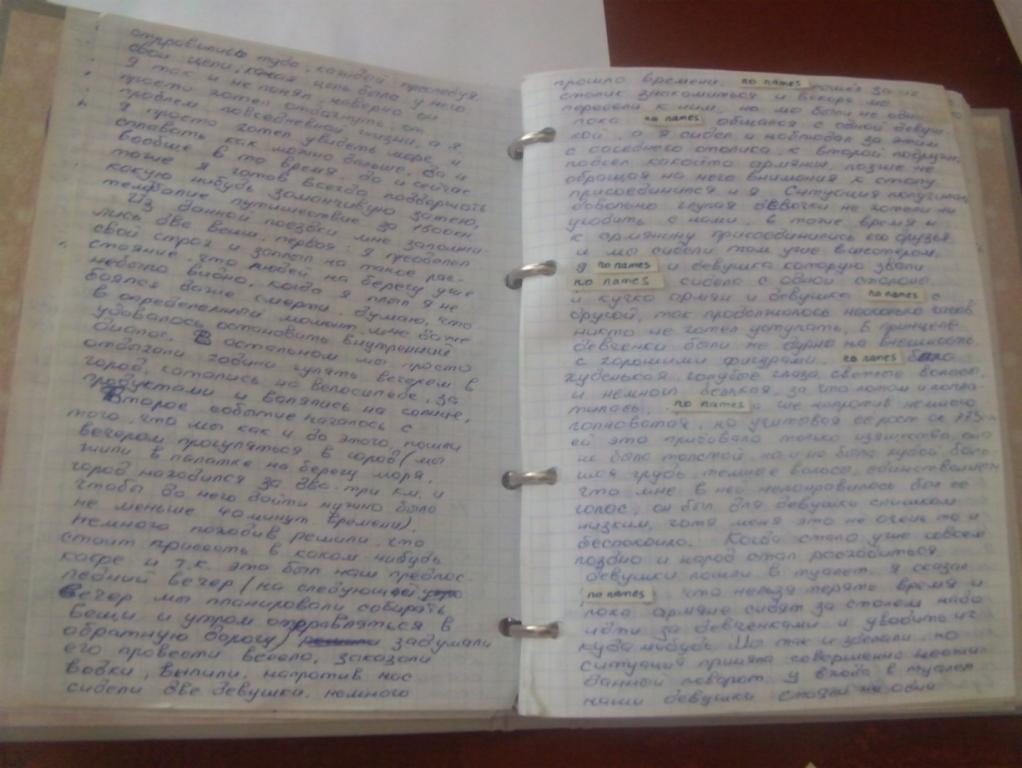 отправились туда, каждый преследуя
свои цели, какая цель была у него
я так и не понял, наверно он
просто хотел отдохнуть от
проблем повседневной жизни, а я
просто хотел увидеть море, и
плавать как можно больше. Да и
вообще в то время, да и сейчас
тоже я готов всегда поддержать
какую нибудь заманчивую затею,
тем более путишествие за 1500км.
Из данной поездки мне запомни-
лись две вещи, первое: я преодолел
свой страх и заплыл на такое рас-
стояние, что людей на берегу уже
небыло видно, когда я плыл я не
боялся даже смерти. Думаю, что
в определенный момент мне даже
удавалось остановить внутренний
диалог. В остальном мы просто
отдыхали ходили гулять вечером в
город, катались на велосипеде, за
продуктами и валялись на солнце,
Второе событие началось с
того, что мы как и до этого, пошли
вечером прогуляться в город (мы
жили в палатке на берегу моря,
город находился за два-три км. и
чтобы до него дойти нужно было
не меньше 40 минут времени)
немного походив решили, что
стоит присесть в каком нибудь
кафе и т.к. это был наш предпос-
ледний вечер (на следующей
вечер мы планировали собирать
вещи и утром отправляться в
обратную дорогу) задумали
его провести весело, заказали
водки, выпили, напротив нас
сидели две девушки, немного
прошло времени, no names пошёл за их
столик знакомиться и вскоре мы
пересели к ним, но мы были не одни
пока no names общался с одной девуш
кой, а я сидел и наблюдал за этим
с соседнего столика, к второй подружке
подсел какойто армянин, позже не
обращая на него внимания к столу
присоединился и я. Ситуация получилась
довольно глупая девочки не хотели ни
уходить с нами, в тоже время и
к армянину присоединились его друзья
и мы сидели там уже вшестером,
я no names и девушка которую звали
no names сидела с одной стороны,
и кучка армян и девушка no names с
другой, так продолжалось насколько часов
никто не хотел уступать. В принципе
девченки были не дурны на внешность
с хорошими фигурами. no names была
худенькая, голубые глаза светлые волосы,
и немного дерзкая, за что потом и попла-
тилась. no names же напротив немного
полноватая, но учитывая её рост см 175
ей это прибовляло только изящества, она
не была толстой, но и не была худой боль
шая грудь, темные волосы, единственное
что мне в ней непонравилось был ее
голос, он был для девушки слишком
низким, хотя меня это не очень то и
беспокоило. Когда стало уже совсем
поздно и народ стал расходиться
девушки пошли в туалет. Я сказал
no names, что нельзя терять время и
пока армяне сидят за столом надо
идти за девченками и уводить их
куда нибудь. Мы так и сделали, но
ситуация приняла совершенно неожи-
данной поворот. У входа в туалет
наши девушки стояли но одни